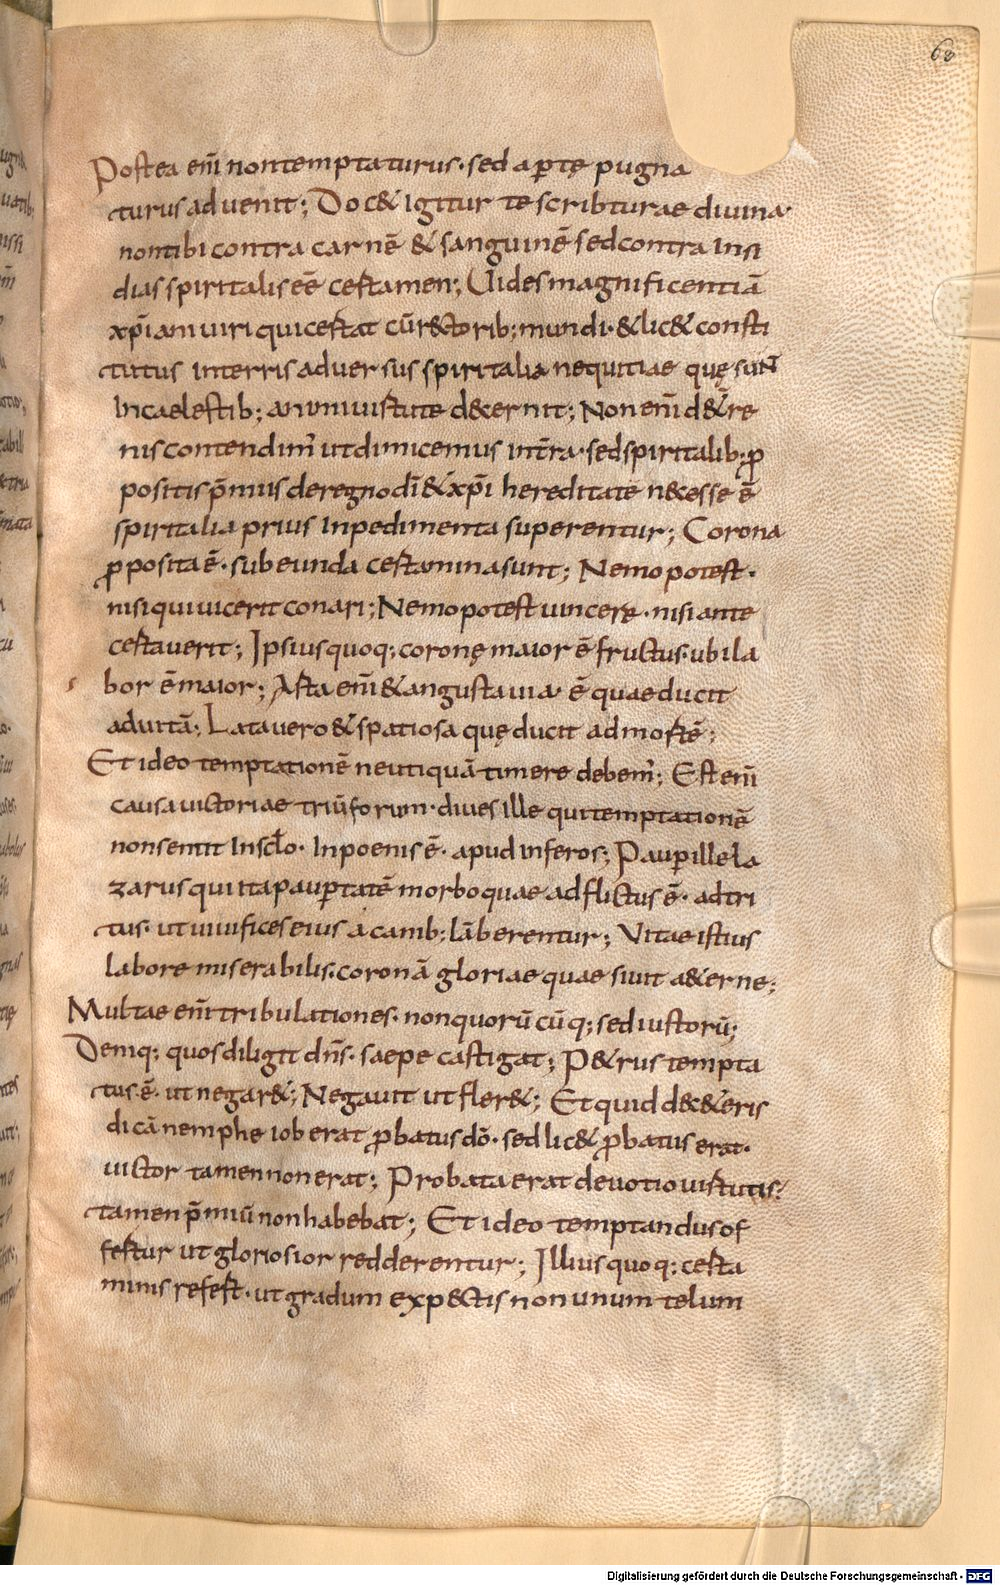 68
Postea em̄ non temptaturus · sed aꝑtę pugna
turus advenit; Doc& igitur te scribturae divina
non tibi contra carnē & sanguinē sed contra insi
dias spiritalis eē̄ certamen; Uides magnificentiā
xp̄iani viri qui certat cū rectorib; mundi · & lic& consti
tutus in terris adversus spiritalia nequitiae quę sunt
in caelestib; animi virtute d&ernit; Non enī d& ̄re
nis contendim' ut dimicemus int̄ra · sed spiritalib; ꝓ
positis p̄miis de regno dī & xp̄i hereditate necesse ē
spiritalia prius inpedimenta superentur; Corona
ꝓposita ē · subeunda certamina sunt; Nemo potest ·
nisi qui vicerit conari; Nemo potest vincere · nisi ante
certaverit; Ipsius quoq; coronę maior ē fructus · ubi la
bor ē maior; Arta em̄ & angusta via ē quae ducit
ad vitā; Lata vero & spatiosa quę ducit ad mortē;
Et ideo temptationē neutiquā timere debem'; Est em̄
causa victoriae triūforum · dives ille qui temptationē
non sentit in sclo · In poenis ē · apud inferos; Pauꝑ ille la
zarus qui ita pauꝑtatē morboquae adflictus ē · adtri
tus · ut vivifices eius a canib; lāberentur; Vitae istius
labore miserabilis · coronā gloriae quaesivit a&erne;
Multae em̄ tribulationes · non quorū cūq; sed iustorū;
Deniq; quos diligit dn̄s · saepe castigat; P&rus tempta
tus ē · ut negar&; Negavit ut fler&; Et quid de c&eris
dicā nemphe iob erat ꝓbatus dō · sed lic& ꝓbatus erat ·
victor tamen non erat; Probata erat devotio virtutis;
tamen p̄miū non habebat; Et ideo temptandus of
fertur ut gloriosior redderentur; Illius quoq; certa
minis refert · ut gradum expectis non unum telum
Digitalisierung gefördert durch die Deutsche Forschungsgemeinschaft - DFG